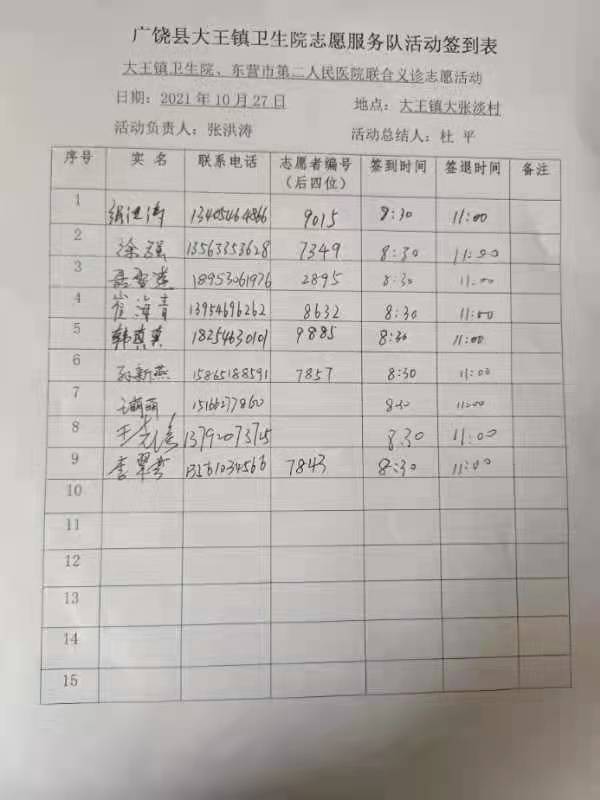 广饶县大王镇卫生院志愿服务队活动签到表
大王镇卫生院、东营市第二人民医院联合义诊志愿活动
日期：2021年10月27日 地点：大王镇大张淡村
活动负责人：张洪涛 活动总结人：杜 平
序号 实 名 联系电话 志愿者编号（后四位） 签到时间 签退时间 备注
1 张洪涛 13405464866 9015 8:30 11:00
2 涂强 13563353628 7349 8:30 11:00
3 18953061976 2895 8:30 11:00
4 崔海青 13954696262 8632 8:30 11:00
5 韩真真 18254630101 9885 8:30 11:00
6 孙新燕 15865188591 7857 8:30 11:00
7 15166277860 8:30 11:00
8 13792073725 8:30 11:00
9 李翠芸 13561034566 7843 8:30 11:00
10
11
12
13
14
15